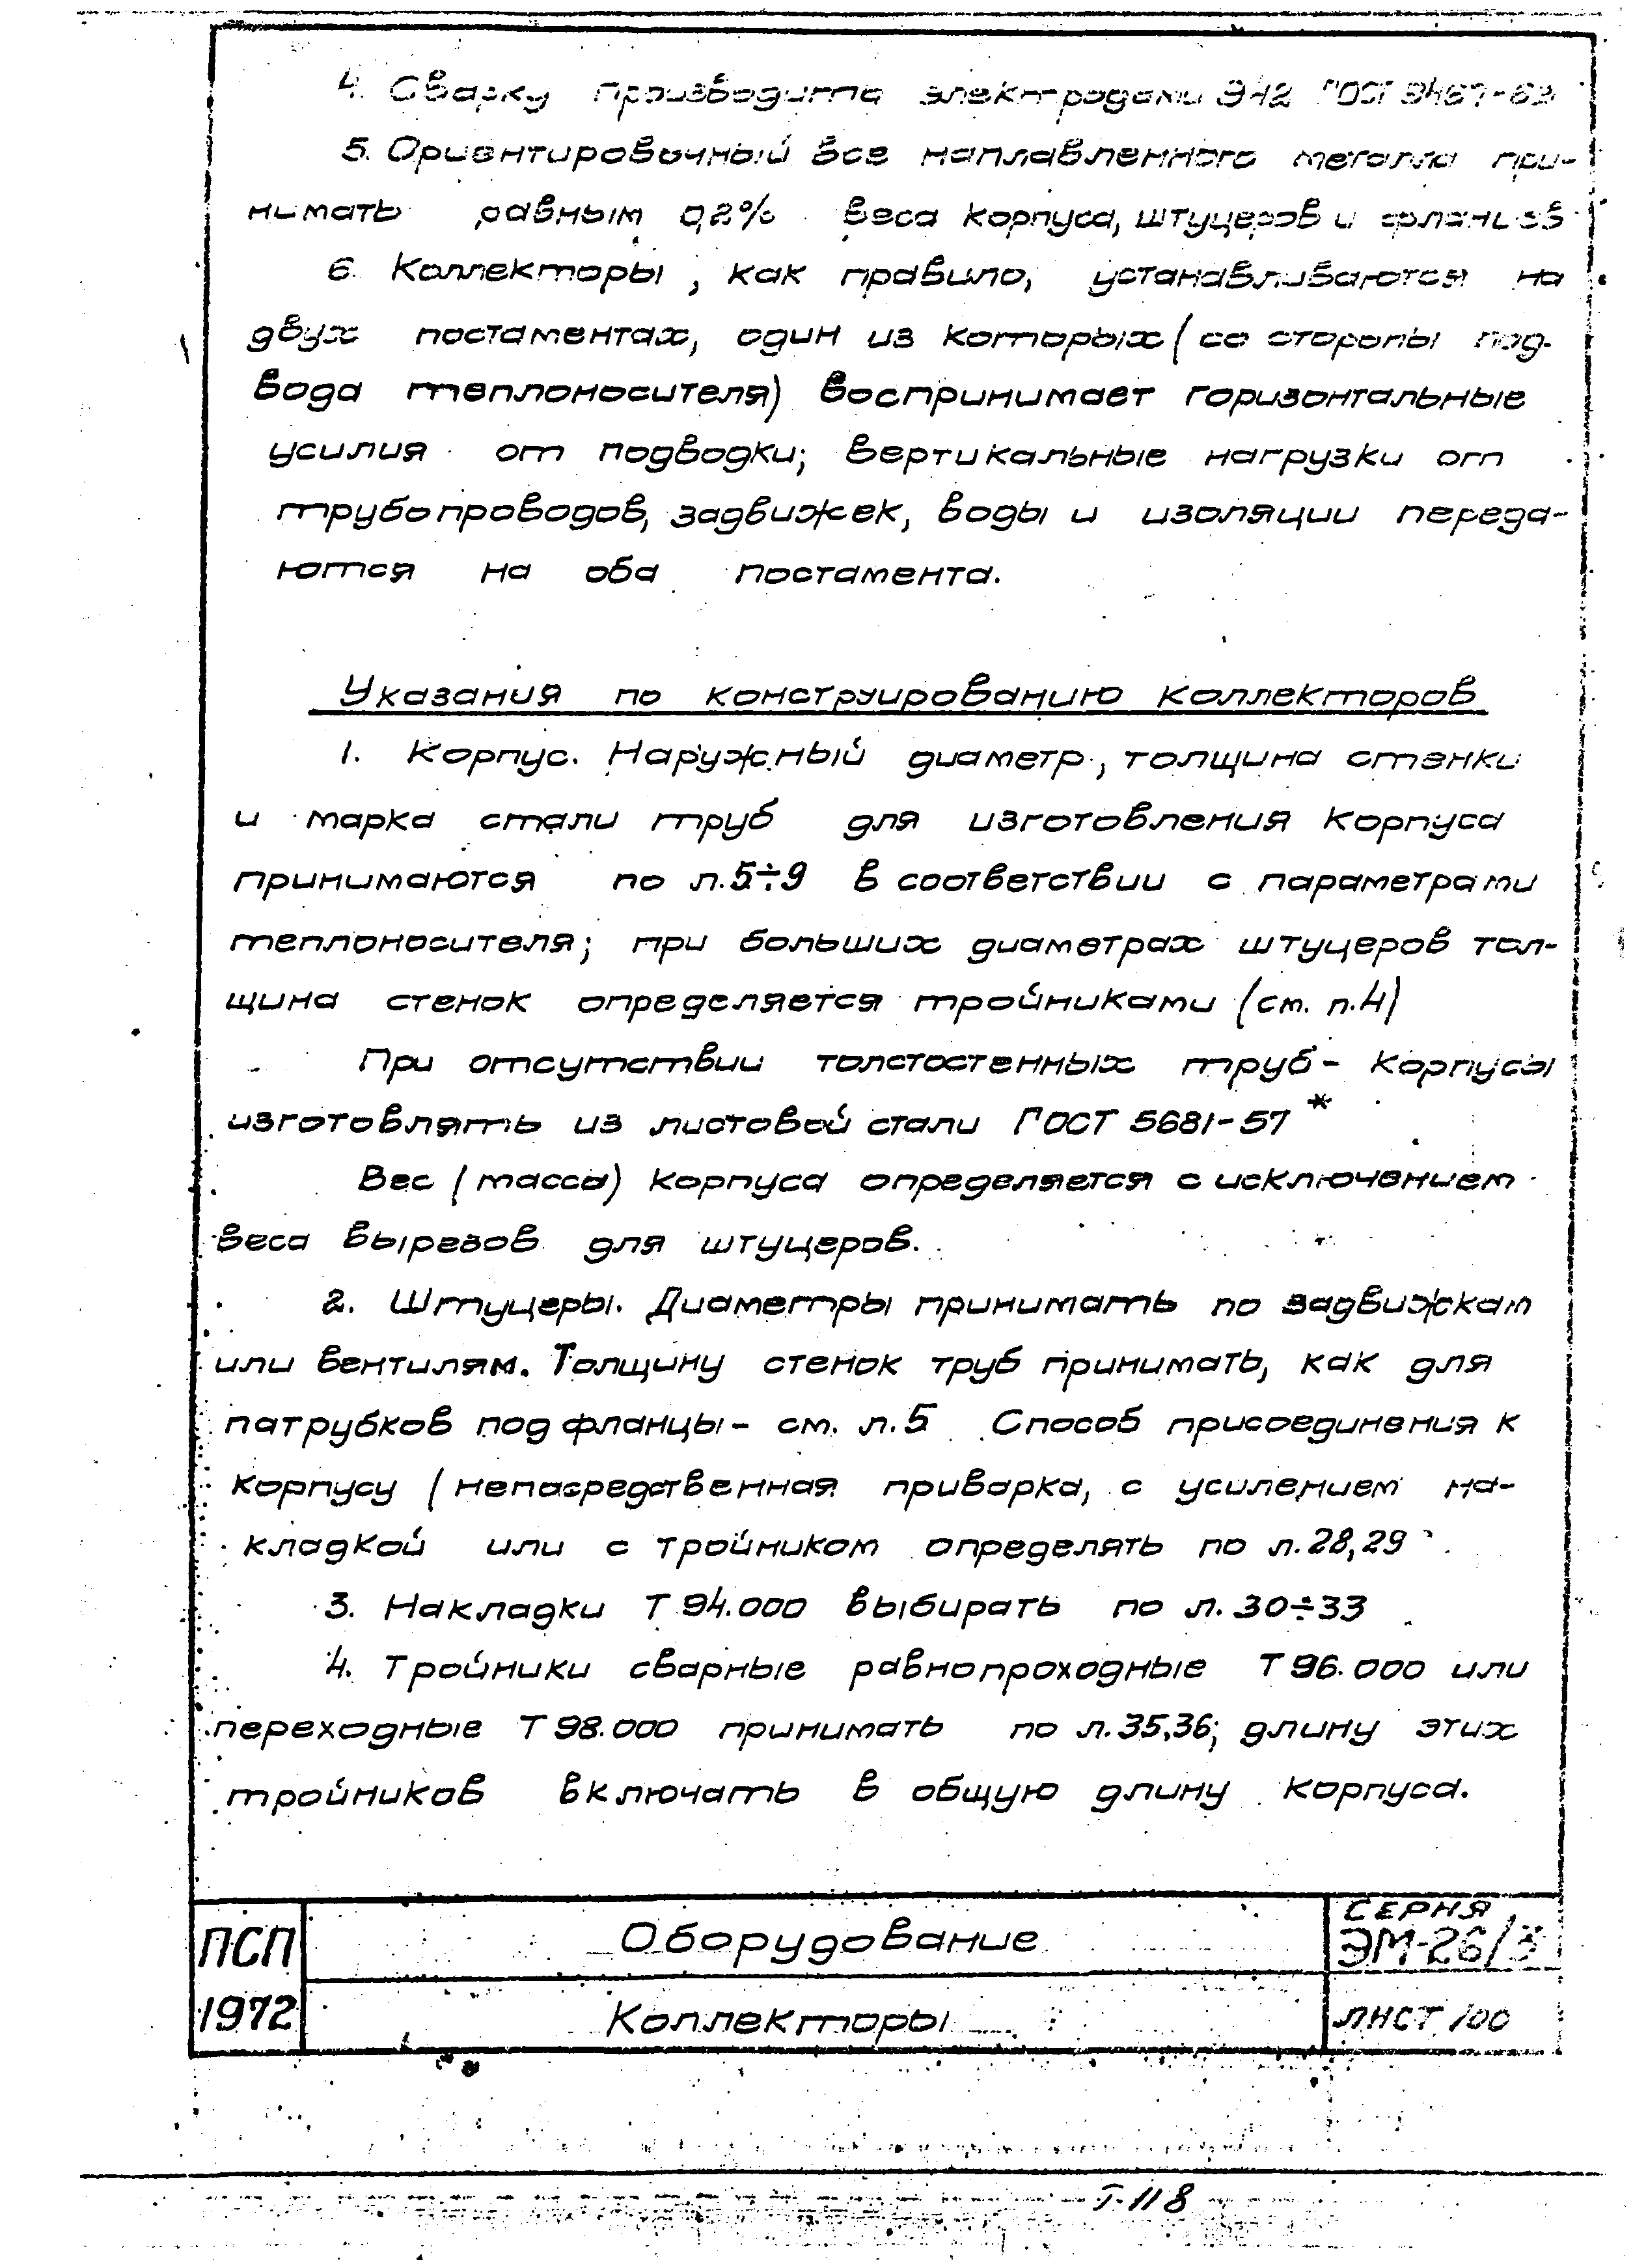 4. Сварку производить электродами Э42 ГОСТ 9467-62
5. Ориентировочный вес наплавленного металла при-
нимать равным 0,2% веса корпуса, штуцеров и фланцев
6. Коллекторы, как правило, устанавливаются на
двух постаментах, один из которых (со стороны под-
вода теплоносителя) воспринимает горизонтальные
усилия от подводки; вертикальные нагрузки от
трубопроводов, задвижек, воды и изоляции переда-
ются на оба постамента.
Указания по конструированию коллекторов
1. Корпус. Наружный диаметр, толщина стенки
и марка стали труб для изготовления корпуса
принимаются по л.5÷9 в соответствии с параметрами
теплоносителя; при больших диаметрах штуцеров тол-
щина стенок определяется тройниками (см. п.4)
При отсутствии толстостенных труб - корпусы
изготовлять из листовой стали ГОСТ 5681-57*
Вес (масса) корпуса определяется с исключением
веса вырезов для штуцеров.
2. Штуцеры. Диаметры принимать по задвижкам
или вентилям. Толщину стенок труб принимать, как для
патрубков под фланцы - см. л.5 Способ присоединения к
корпусу (непосредственная приварка, с усилением на-
кладкой или с тройником определять по л.28,29
3. Накладки Т 94.000 выбирать по л. 30÷33
4. Тройники сварные равнопроходные Т 96.000 или
переходные Т 98.000 принимать по л.35,36; длину этих
тройников включать в общую длину корпуса.
ПСП
1972
Оборудование
Коллекторы
СЕРИЯ
ЭМ-26/3
ЛИСТ 100
Т-118